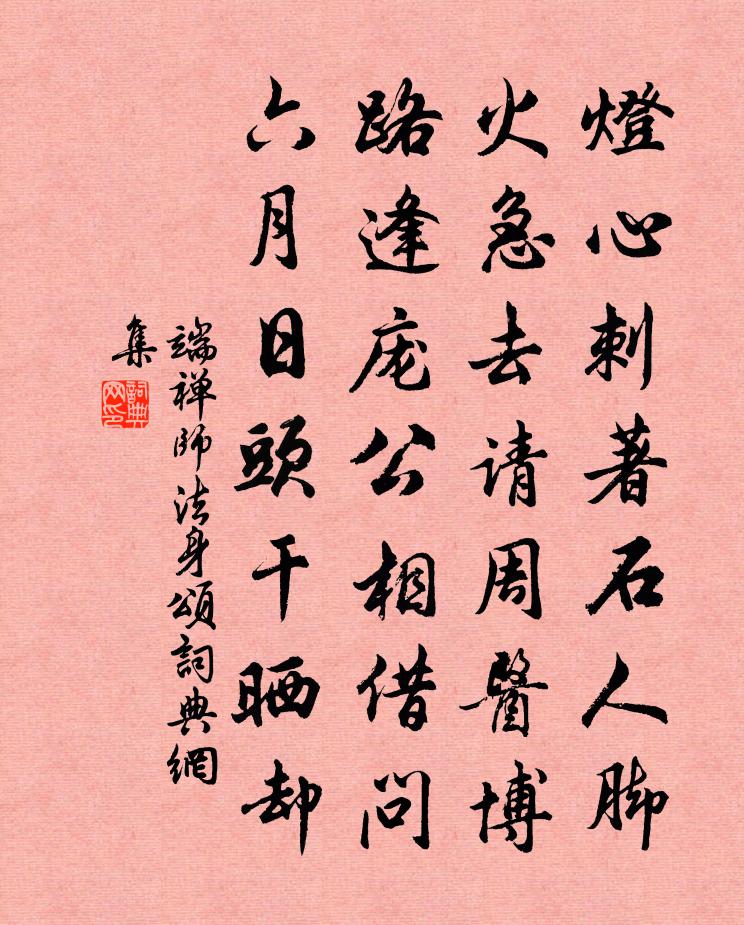 燈心刺著石人脚
火急去请周醫博
路逢庞公相借問
六月日頭干晒却
端禅师法身頌詞典網
集
詞典网印